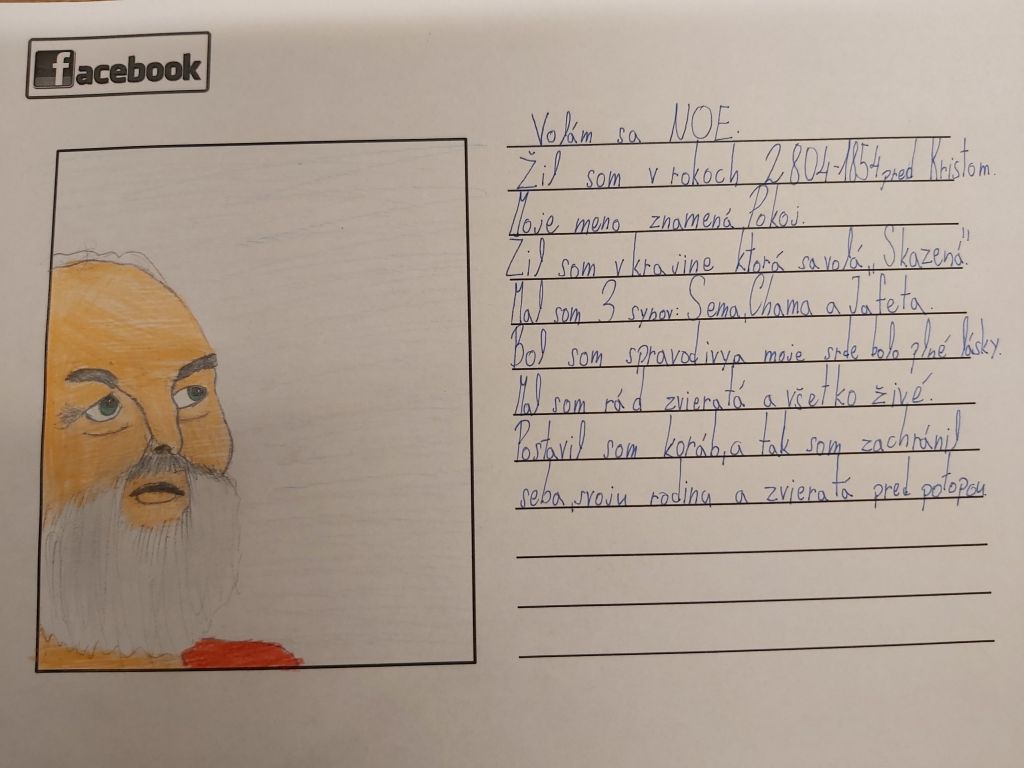 facebook
Volám sa NOE.
Žil som v rokoch 2804-1854 pred Kristom.
Moje meno znamená Pokoj.
Žil som v krajine ktorá sa volá „Skazená".
Mal som 3 synov: Sema, Chama a Jafeta.
Bol som spravodivy a moje srde bolo plné lásky.
Mal som rád zvieratá a všetko živé.
Postavil som koráb, a tak som zachránil
seba, svoju rodinu a zvieratá pred potopou